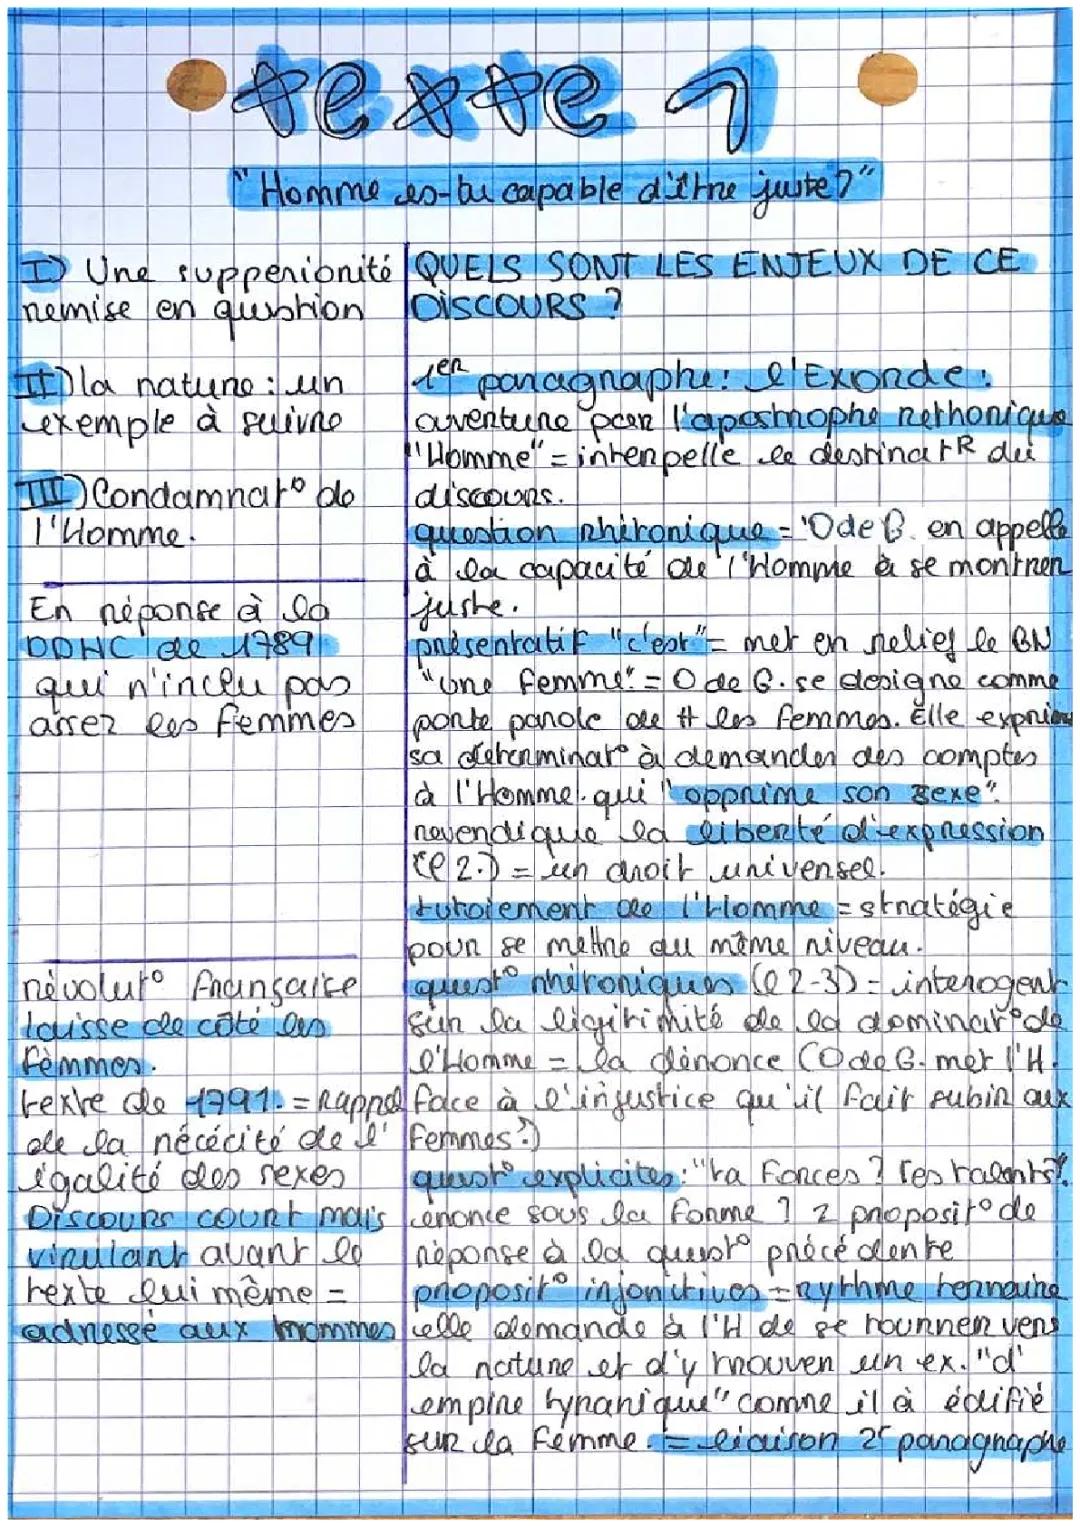 texte 1
"Homme es-tu capable d'être juste?"
I) Une suppériorité
remise en question
II) la nature : un
exemple à suivre
III) Condamnat° de
l'Homme.
En réponse à la
DDHC de 1789
qui n'inclu pas
assez les femmes
révolut° française
laisse de côté les
femmes.
texte de 1791. = rappel
de la nécécité de l'
égalité des sexes
Discours court mais
virulant avant le
texte lui même =
adressé aux hommes
QUELS SONT LES ENJEUX DE CE
DISCOURS ?
1er paragraphe: l'Exorde:
ouverture par l'apostrophe rethorique
"Homme" = interpelle le destinatR du
discours.
question rhétorique = O de G. en appelle
à la capacité de l'Homme à se montrer
juste.
présentatif "c'est" = met en relief le GN
"une femme" = O de G. se désigne comme
porte parole de tt les femmes. Elle exprime
sa déterminat° à demander des comptes
à l'Homme qui "opprime son sexe".
revendique la liberté d'expression
(l 2.) = un droit universel.
tutoiement de l'Homme = stratégie
pour se mettre au même niveau.
quest° rhétoriques (l 2-3) = interogent
sur la légitimité de la dominat° de
l'Homme = la dénonce (O de G. met l'H.
face à l'injustice qu'il fait subir aux
femmes.)
quest° explicites: "ta forces ? tes talents?"
énonce sous la forme ? 2 proposit° de
réponse à la quest° précédente
proposit° injonctives = rythme ternaire
elle demande à l'H de se tourner vers
la nature et d'y trouver un ex. "d'
empire tyranique" comme il à édifié
sur la femme. = liaison 2e paragraphe